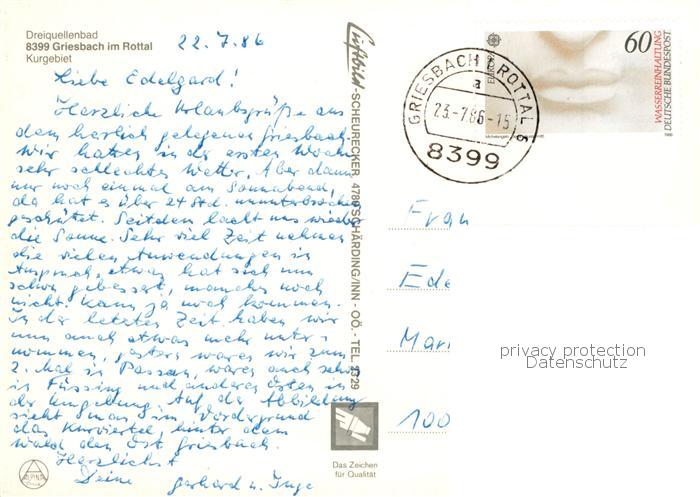 Dreiquellenbad
8399 Griesbach im Rottal
Kurgebiet
22.7.86
Liebe Edelgard!
Herzliche Urlaubsgrüße aus
dem herrlich gelegenen Griesbach.
Wir hatten in der ersten Woche
sehr schlechtes Wetter. Aber dann
nur noch einmal am Sonnabend,
da hat es über 24 Std. ununterbrochen
geschüttet. Seitdem lacht uns wieder
die Sonne. Sehr viel Zeit nehmen
die vielen Anwendungen in
Anspruch, etwas hat sich nun
schon gebessert, manches noch
nicht. Kann ja noch kommen.
In der letzten Zeit haben wir
nun auch etwas mehr unter-
nommen, gestern waren wir zum
2. Mal in Passau, waren auch schon
in Füssing und anderen Orten in
der Umgebung. Auf der Abbildung
sieht man im Vordergrund
das Kurviertel, hinter dem
Wald den Ort Griesbach.
Herzlichst
Deine Gerhard u. Inge
Luftbild-SCHEURECKER, 4780 SCHÄRDING/INN - OÖ. - TEL.
Das Zeichen
für Qualität
GRIESBACH I ROTTAL
a
23.-7.86-15
8399
EUROPA
60
WASSERREINHALTUNG
DEUTSCHE BUNDESPOST
1986
Frau
Ede
Mari
100
privacy protection
Datenschutz